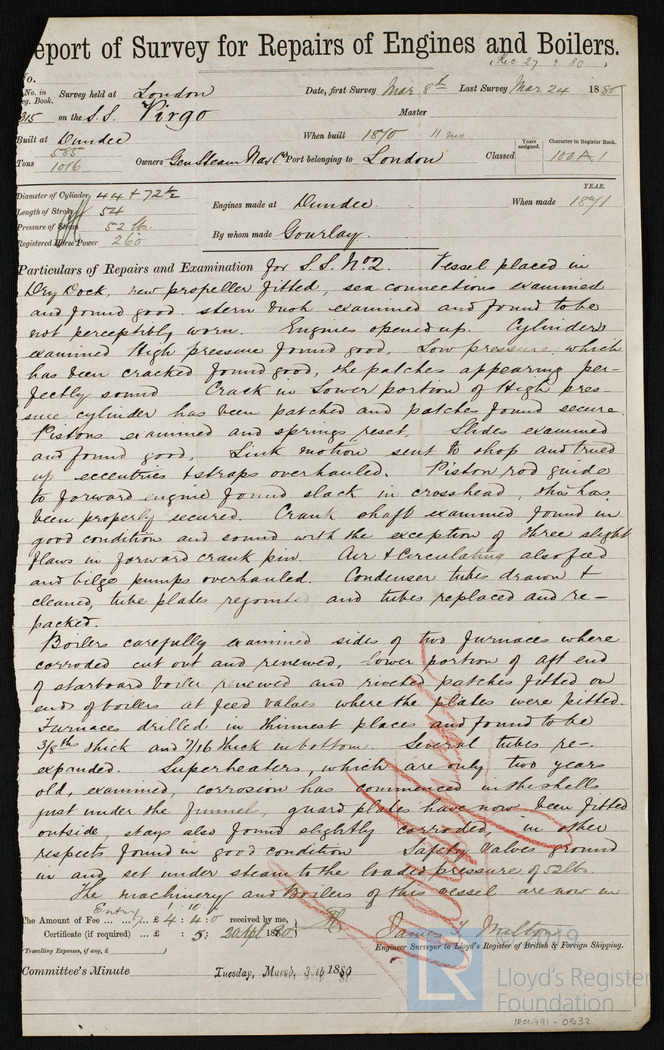 eport of Survey for Repairs of Engines and Boilers.
(Rec 27 3 80)
No.
No. in eg. Book. Survey held at London Date, first Survey Mar 8th Last Survey Mar 24 1880
315 on the S.S. Virgo Master
Built at Dundee When built 1870 11 mo Years assigned. Character in Register Book.
Tons 585 1016 Owners Gen Steam Nav Co Port belonging to London Classed 100 A 1
Diameter of Cylinder 44 + 72½ YEAR.
Length of Stroke 54 Engines made at Dundee When made 1871
Pressure of Steam 52 lbs.
Registered Horse Power 260 By whom made Gourlay.
Particulars of Repairs and Examination for S.S. No 2. Vessel placed in
Dry Dock, new propeller fitted, sea connections examined
and found good. stern bush examined and found to be
not perceptibly worn. Engines opened up. Cylinders
examined High pressure found good, Low pressure which
has been cracked found good, the patches appearing per-
fectly sound Crack in Lower portion of High pres-
sure cylinder has been patched and patches found secure.
Pistons examined and springs reset. Slides examined
and found good, Link motion sent to shop and trued
up eccentrics & straps overhauled. Piston rod guide
to forward engine found slack in crosshead, this has
been properly secured. Crank shaft examined found in
good condition and sound with the exception of three slight
flaws in forward crank pin. Air & Circulating also feed
and bilge pumps overhauled. Condenser tubes drawn &
cleaned, tube plates rejointed and tubes replaced and re-
packed.
Boilers carefully examined sides of two furnaces where
corroded cut out and renewed, lower portion of aft end
of starboard boiler renewed and riveted patches fitted on
ends of boilers at feed valves where the plates were pitted.
Furnaces drilled in thinnest places and found to be
3/8ths thick and 7/16 thick in bottom. Several tubes re-
expanded. Superheaters, which are only two years
old, examined, corrosion has commenced in the shells
just under the funnel, guard plates have now been fitted
outside, stays also found slightly corroded, in other
respects found in good condition Safety Valves ground
in and set under steam to the loaded pressure of 52 lbs.
The machinery and Boilers of this vessel are now in
Entry 1 : 10 :
The Amount of Fee ... £ 4 : 4 : 0 received by me,
Certificate (if required) ... £ : 5 : 1880
(Travelling Expenses, if any, £ )
James T. Milton
Engineer Surveyor to Lloyd's Register of British & Foreign Shipping.
Committee's Minute Tuesday, March, 30th 1880
© 2019
LR
Lloyd's Register
Foundation
IRON491-0532